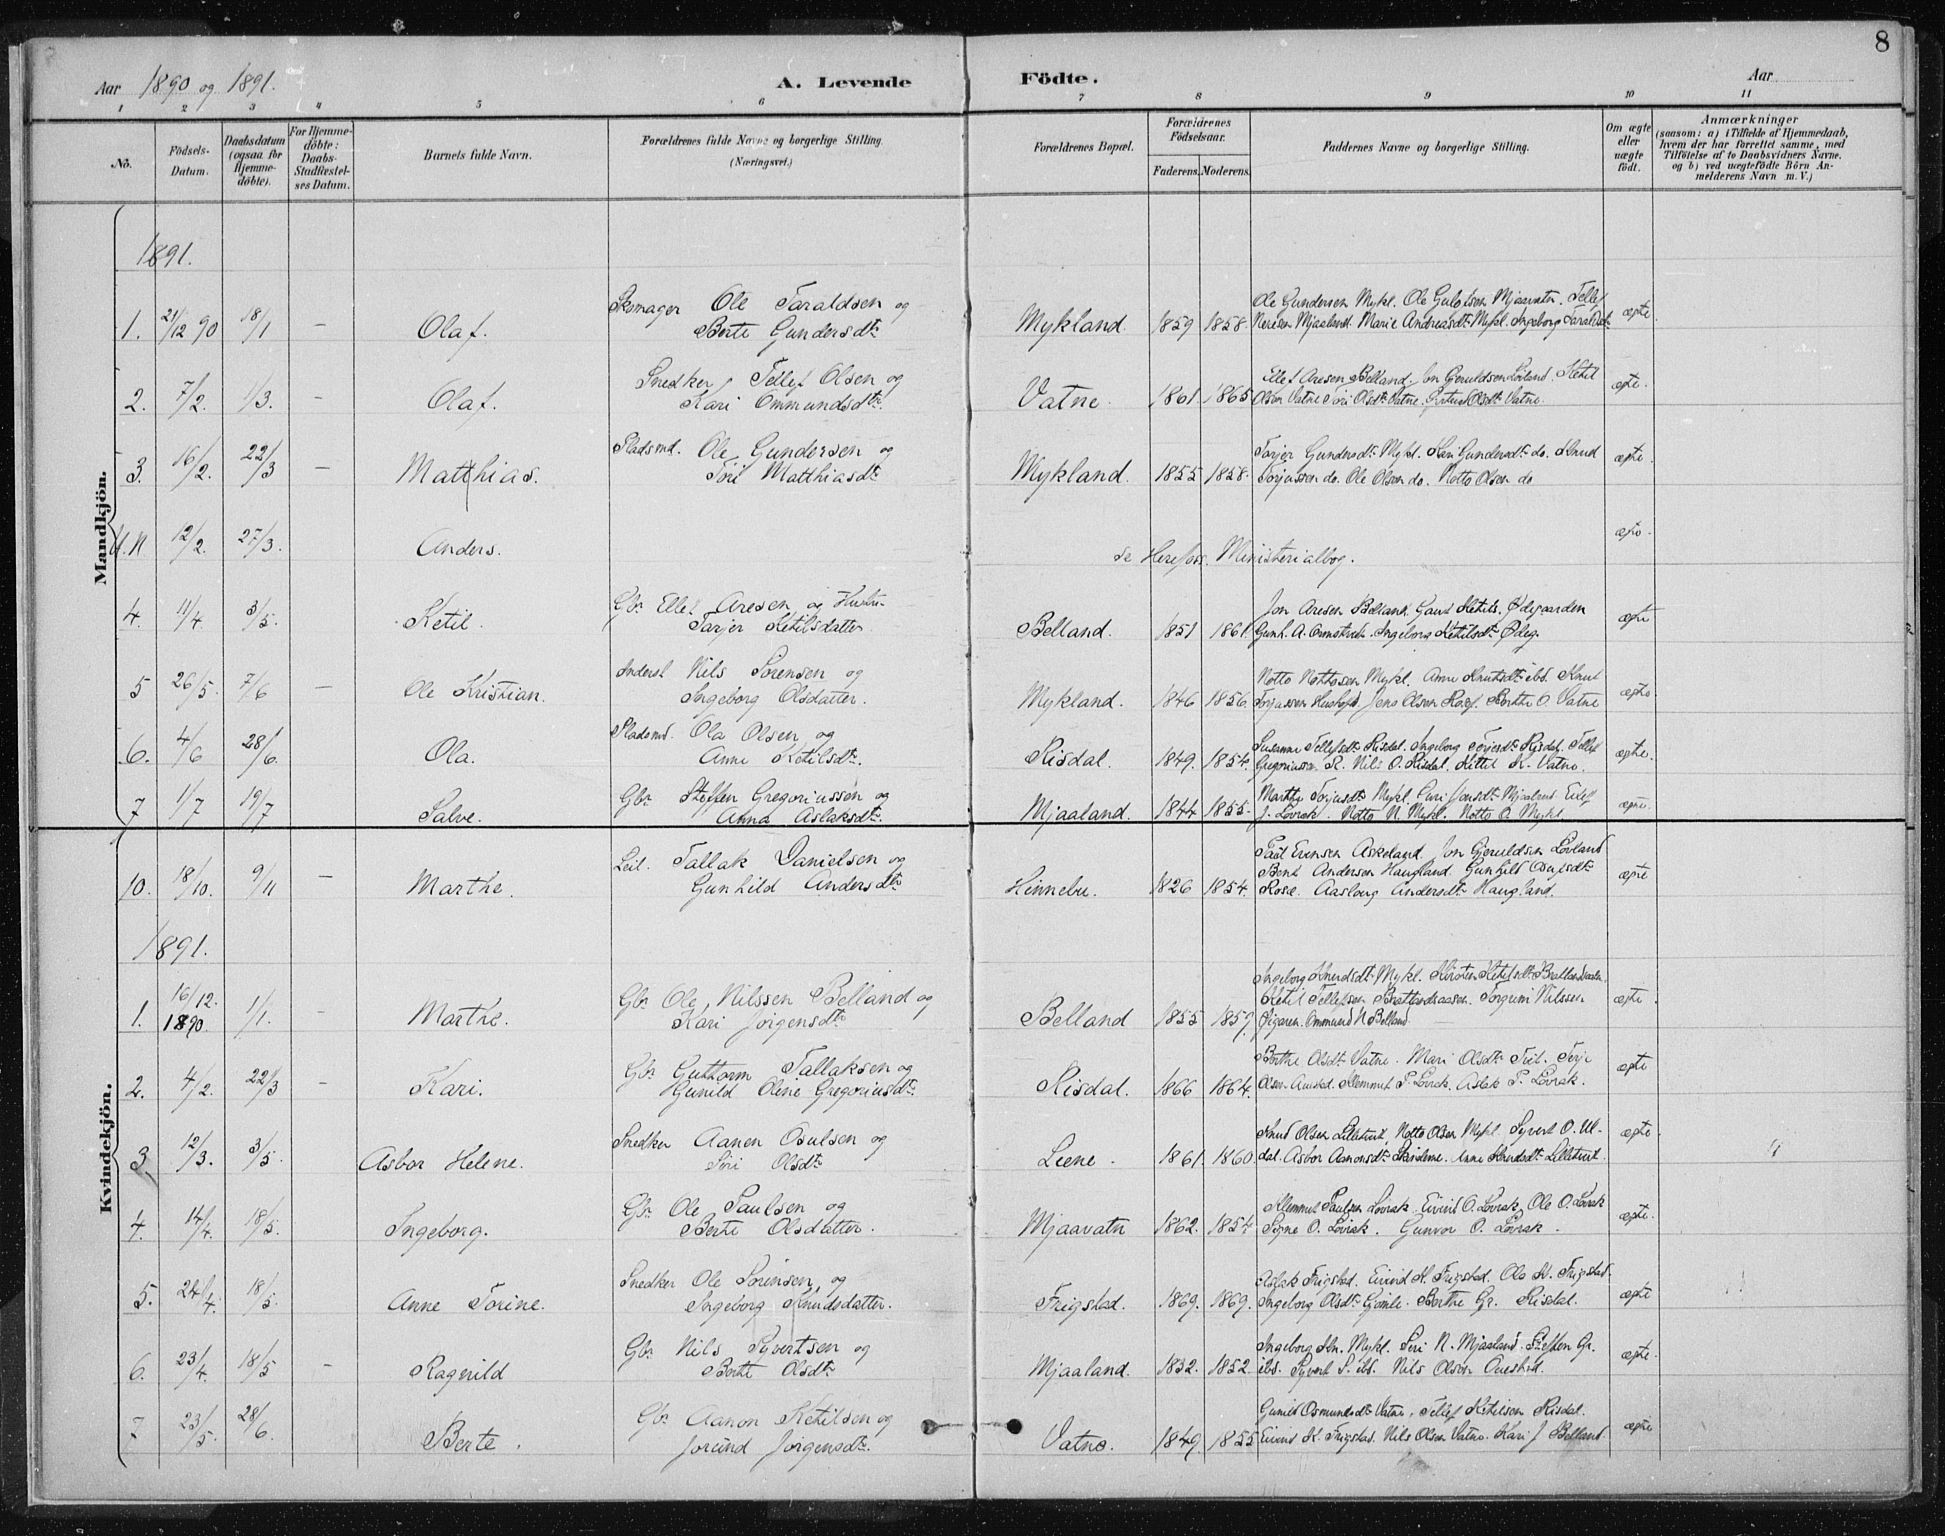 8
Aar 1890 og 1891.
A. Levende Födte.
Aar
1 2 3 4 5 6 7 8 9 10 11
No.
Födsels-Datum.
Daabsdatum (ogsaa for Hjemme-döbte).
For Hjemme-döbte: Daabs-Stadfæstel-ses Datum.
Barnets fulde Navn.
Forældrenes fulde Navne og borgerlige Stilling. (Næringsvei.)
Forældrenes Bopæl.
Forældrenes Födselsaar.
Faderens. Moderens.
Faddernes Navne og borgerlige Stilling.
Om ægte eller uægte födt.
Anmærkninger
(saasom: a) i Tilfælde af Hjemmedaab,
hvem der har forrettet samme, med
Tilföielse af to Daabsvidners Navne,
og b) ved uægtefödte Börn An-
melderens Navn m. V.)
Mandkjön.
1891.
1. 21/12 90 18/1 – Olaf. Skomager Ole Taraldsen og Mykland. 1859 1858. Ole Gundersen Mykl. Ole Gulofsen Mjaavatn. Tellef ægte.
Berte Gundersdtr Neresen Mjaaland. Marie Andreasdtr Mykl. Ingeborg Taraldsdtr
2. 7/2. 1/3. – Olaf. Snedker Tellef Olsen og Vatne. 1861 1865 Ellef Aresen Belland. Jon Gjeruldsen Lovland. Ketil ægte.
Kari Ommundsdtr. Olsen Vatne Siri Olsdtr Vatne. Olsdtr Vatne.
3. 16/2. 22/3 – Matthias. Pladsmd. Ole Gundersen og Mykland. 1855 1858. Torjer Gundersdtr Mykl. Kari Gundersdtr do. Knud ægte.
Siri Matthiasdtr Torjussen do. Ole Olsen do. Notto Olsen do
12/2. 27/3. Anders. se Herefoss Ministerialbog. ægte.
4. 11/4 3/5. Ketil. Gbr. Ellef Aresen og Hustru Belland. 1851 1861. Jon Aresen Belland. Gaut Ketils. Ødegaarden ægte
Tarjer Ketilsdatter. Gunh. A. Ingeborg Ketilsdtr Ødeg.
5 26/5. 7/6 – Ole Kristian. Inderst Nils Sørensen og Mykland. 1846 1856. Notto Nottosen Mykl. Anne Knutsdtr ibd. Knut ægte.
Ingeborg Olsdatter. Torjussen Jens Olsen Berthe O. Vatne
6. 4/6 28/6. Ola. Pladsmd. Ola Olsen og Risdal. 1849. 1854. Susanne Tellefsdtr Risdal. Ingeborg Torjesdtr Risdal. Tellef ægte.
Anne Ketilsdtr. Gregoriussen R. Nils O. Risdal. Kittil K. Vatne.
7 1/7 19/7 Salve. Gbr. Steffen Gregoriussen og Mjaaland. 1844 1855. Marthe Torjusdtr Mykl. Guri Jonsdtr Mjaaland. Eilef ægte.
Anna Aslaksdtr. J. Lovrak. Notto N. Mykl. Notto O. Mykl.
Kvindekjön.
10. 18/10. 9/11 – Marthe. Leil. Tallak Danielsen og Hinnebu. 1826 1854. Paal Evensen Askeland. Jon Gjeruldsen Lovland ægte
Gunhild Andersdtr Bent Andersen Haugland. Gunhild Osulsdtr
Rosse. Aasloug Andersdtr Haugland.
1891.
1. 16/12. 1890. 1/1. – Marthe. Gbr. Ole Nilssen Belland og Belland 1855 1859. Ingeborg Knudsdtr Mykl. Kirsten Ketilsdtr Bratlandsaasen ægte.
Kari Jörgensdtr Ketil Tellefsen Bratlandsaasen. Torgrim Nilssen
Øigaren. Ommund N Belland.
2. 4/2. 22/3 – Kari. Gbr. Guttorm Tallaksen og Risdal. 1866 1864. Berthe Olsdtr Vatne. Mari Olsdtr Terje ægte
Gunild Oline Gregoriusdtr. Olsen Klemmet P. Lovrak. Aslak P. Lovrak.
3 12/3. 3/5. Asbor Helene. Snedker Aanen Osulsen og Liene. 1861. 1860 Knud Olsen Lilletveit, Notto Olsen Mykl. Syvert O. Ul- ægte.
Siri Olsdtr dal. Asbor Aanonsdtr Anne Knudsdtr Lilletveit.
4. 14/4. 18/5. Ingeborg. Gbr. Ole Paulsen og Mjaavatn 1862. 1854. Klemmet Paulsen Lovrak. Eivind O. Lovrak, Ole O. Lovrak ægte.
Berte Olsdatter. Signe O. Lovrak. Gunvor O. Lovrak.
5. 24/4. 18/5. Anne Torine. Snedker Ole Sörensen, og Frigstad. 1869. 1869. Aslak Frigstad. Eivind K. Frigstad. Ole K. Frigstad. ægte
Ingeborg Knudsdatter. Ingeborg Olsdtr Gjömle. Berthe Gr. Risdal.
6. 23/4. 18/5 – Ragnild Gbr. Nils Syvertsen og Mjaaland. 1832. 1852. Ingeborg Kn. Mykl. Siri N. Mjaaland. Steffen Gr. ægte.
Berte Olsdtr ibs. Syvert S. ibs. Nils Olsen
7 23/5. 28/6. Berte. Gbr. Aanon Ketilsen og Vatne. 1849. 1855 Gunild Osmundsdtr Vatne. Tellef Ketilsen Risdal. ægte
Jorund Jörgensdtr. Eivind K. Frigstad. Nils Olsen Vatne. Kari J Belland